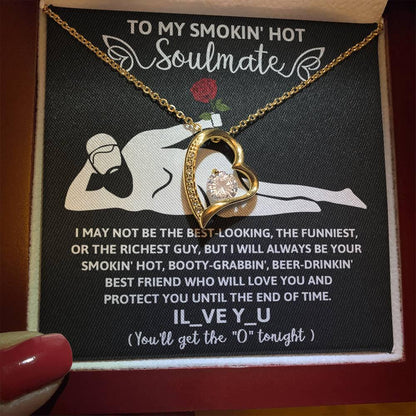 TO MY SMOKIN' HOT
Soulmate
I MAY NOT BE THE BEST-LOOKING, THE FUNNIEST,
OR THE RICHEST GUY, BUT I WILL ALWAYS BE YOUR
SMOKIN' HOT, BOOTY-GRABBIN', BEER-DRINKIN'
BEST FRIEND WHO WILL LOVE YOU AND
PROTECT YOU UNTIL THE END OF TIME.
IL_VE Y_U
(You'll get the "O" tonight )